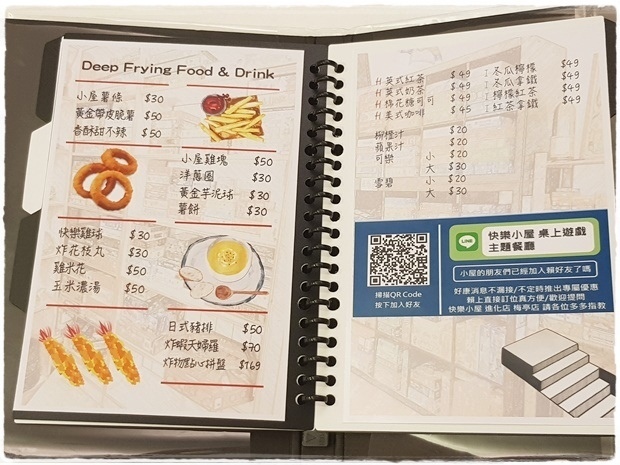 Deep Frying Food & Drink
小屋薯條 $30
黃金帶皮脆薯 $50
香酥甜不辣 $50
小屋雞塊 $50
洋蔥圈 $30
黃金芋泥球 $30
薯餅 $30
快樂雞球 $30
炸花枝丸 $30
雞米花 $50
玉米濃湯 $50
日式豬排 $50
炸蝦天婦羅 $70
炸物點心拼盤 $169
H 英式紅茶 $49
H 英式奶茶 $49
H 梅花糖可可 $49
H 美式咖啡 $45
I 冬瓜檸檬 $49
I 冬瓜拿鐵 $49
I 檸檬紅茶 $49
I 紅茶拿鐵 $49
柳橙汁 $20
蘋果汁 $20
可樂 小 $20
大 $30
雪碧 小 $20
大 $30
LINE
快樂小屋 桌上遊戲
主題餐廳
小屋的朋友們已經加入賴好友了嗎
掃描QR Code
按下加入好友
好康消息不漏接/不定時推出專屬優惠
賴上直接訂位真方便/歡迎提問
快樂小屋 進化店 梅亭店 請各位多多指教